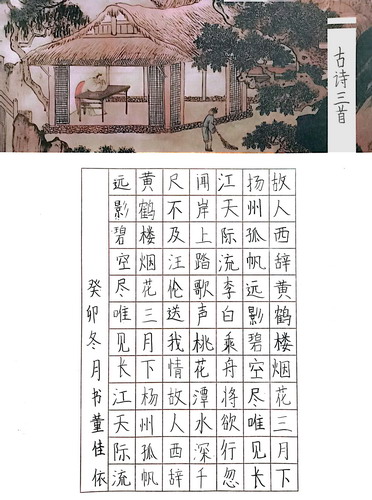 古诗三首
故人西辞黄鹤楼烟花三月下
扬州孤帆远影碧空尽唯见长
江天际流李白乘舟将欲行忽
闻岸上踏歌声桃花潭水深千
尺不及汪伦送我情故人西辞
黄鹤楼烟花三月下杨州孤帆
远影碧空尽唯见长江天际流
癸卯冬月书董佳依